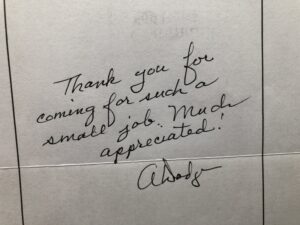 Thank you for
coming for such a
small job. Much
appreciated!